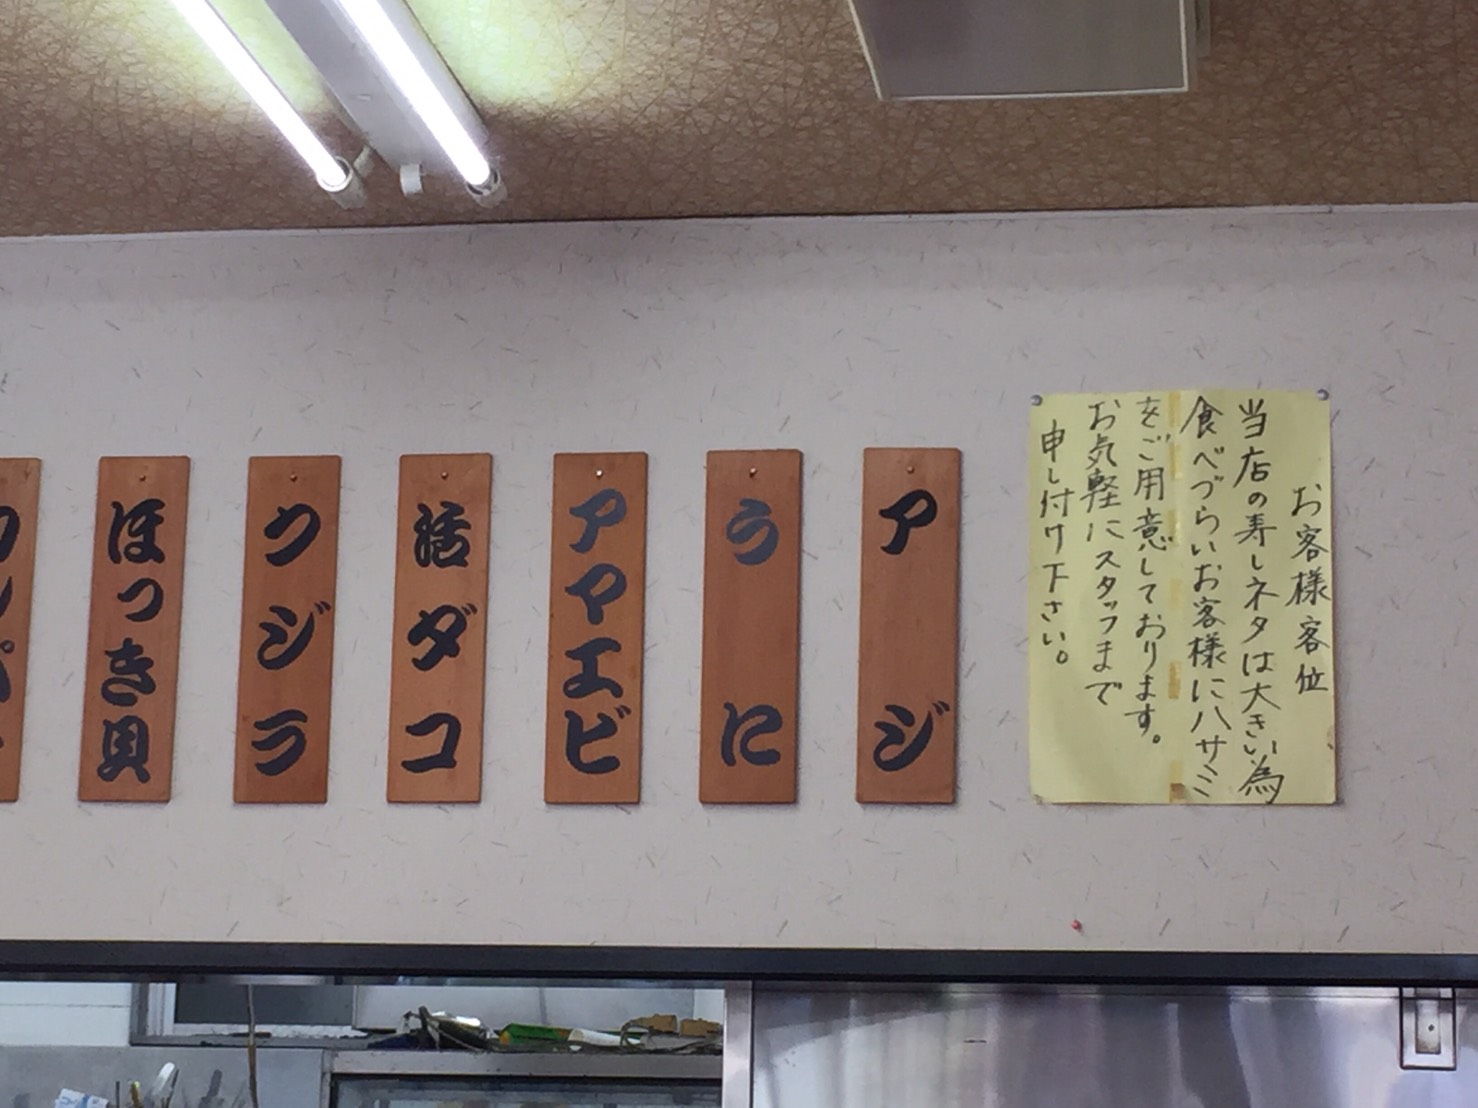 お客様客位
当店の寿しネタは大きい為
食べづらいお客様にハサミ
をご用意しております。
お気軽にスタッフまで
申し付け下さい。
アジ
うに
アマエビ
活ダコ
クジラ
ほっき貝